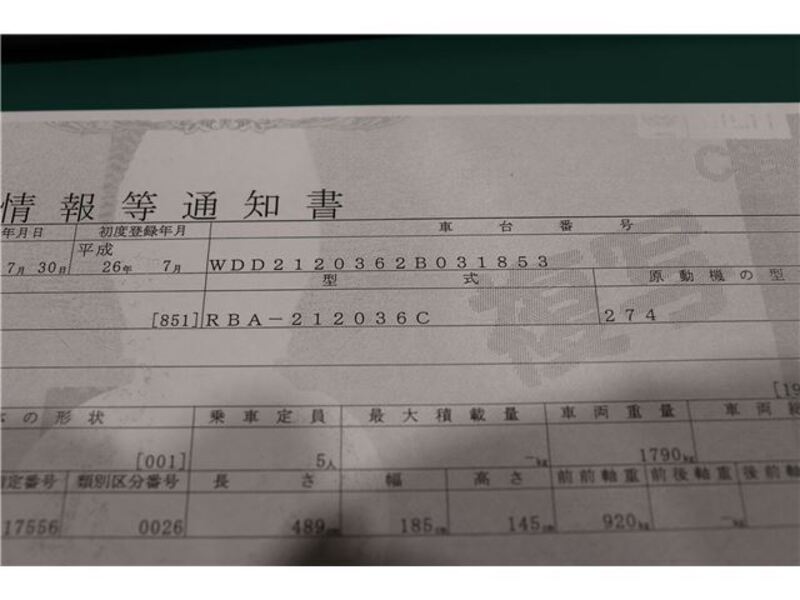 情報等通知書
年月日 初度登録年月 車台番号
平成
7月 30日 26年 7月 WDD2120362B031853
型式 原動機の型
[851] RBA-212036C 274
複写
[19
の形状 乗車定員 最大積載量 車両重量 車両総
[001] 5人 -kg 1790kg
定番号 類別区分番号 長さ 幅 高さ 前前軸重 前後軸重 後前軸
17556 0026 489cm 185cm 145cm 920kg -kg